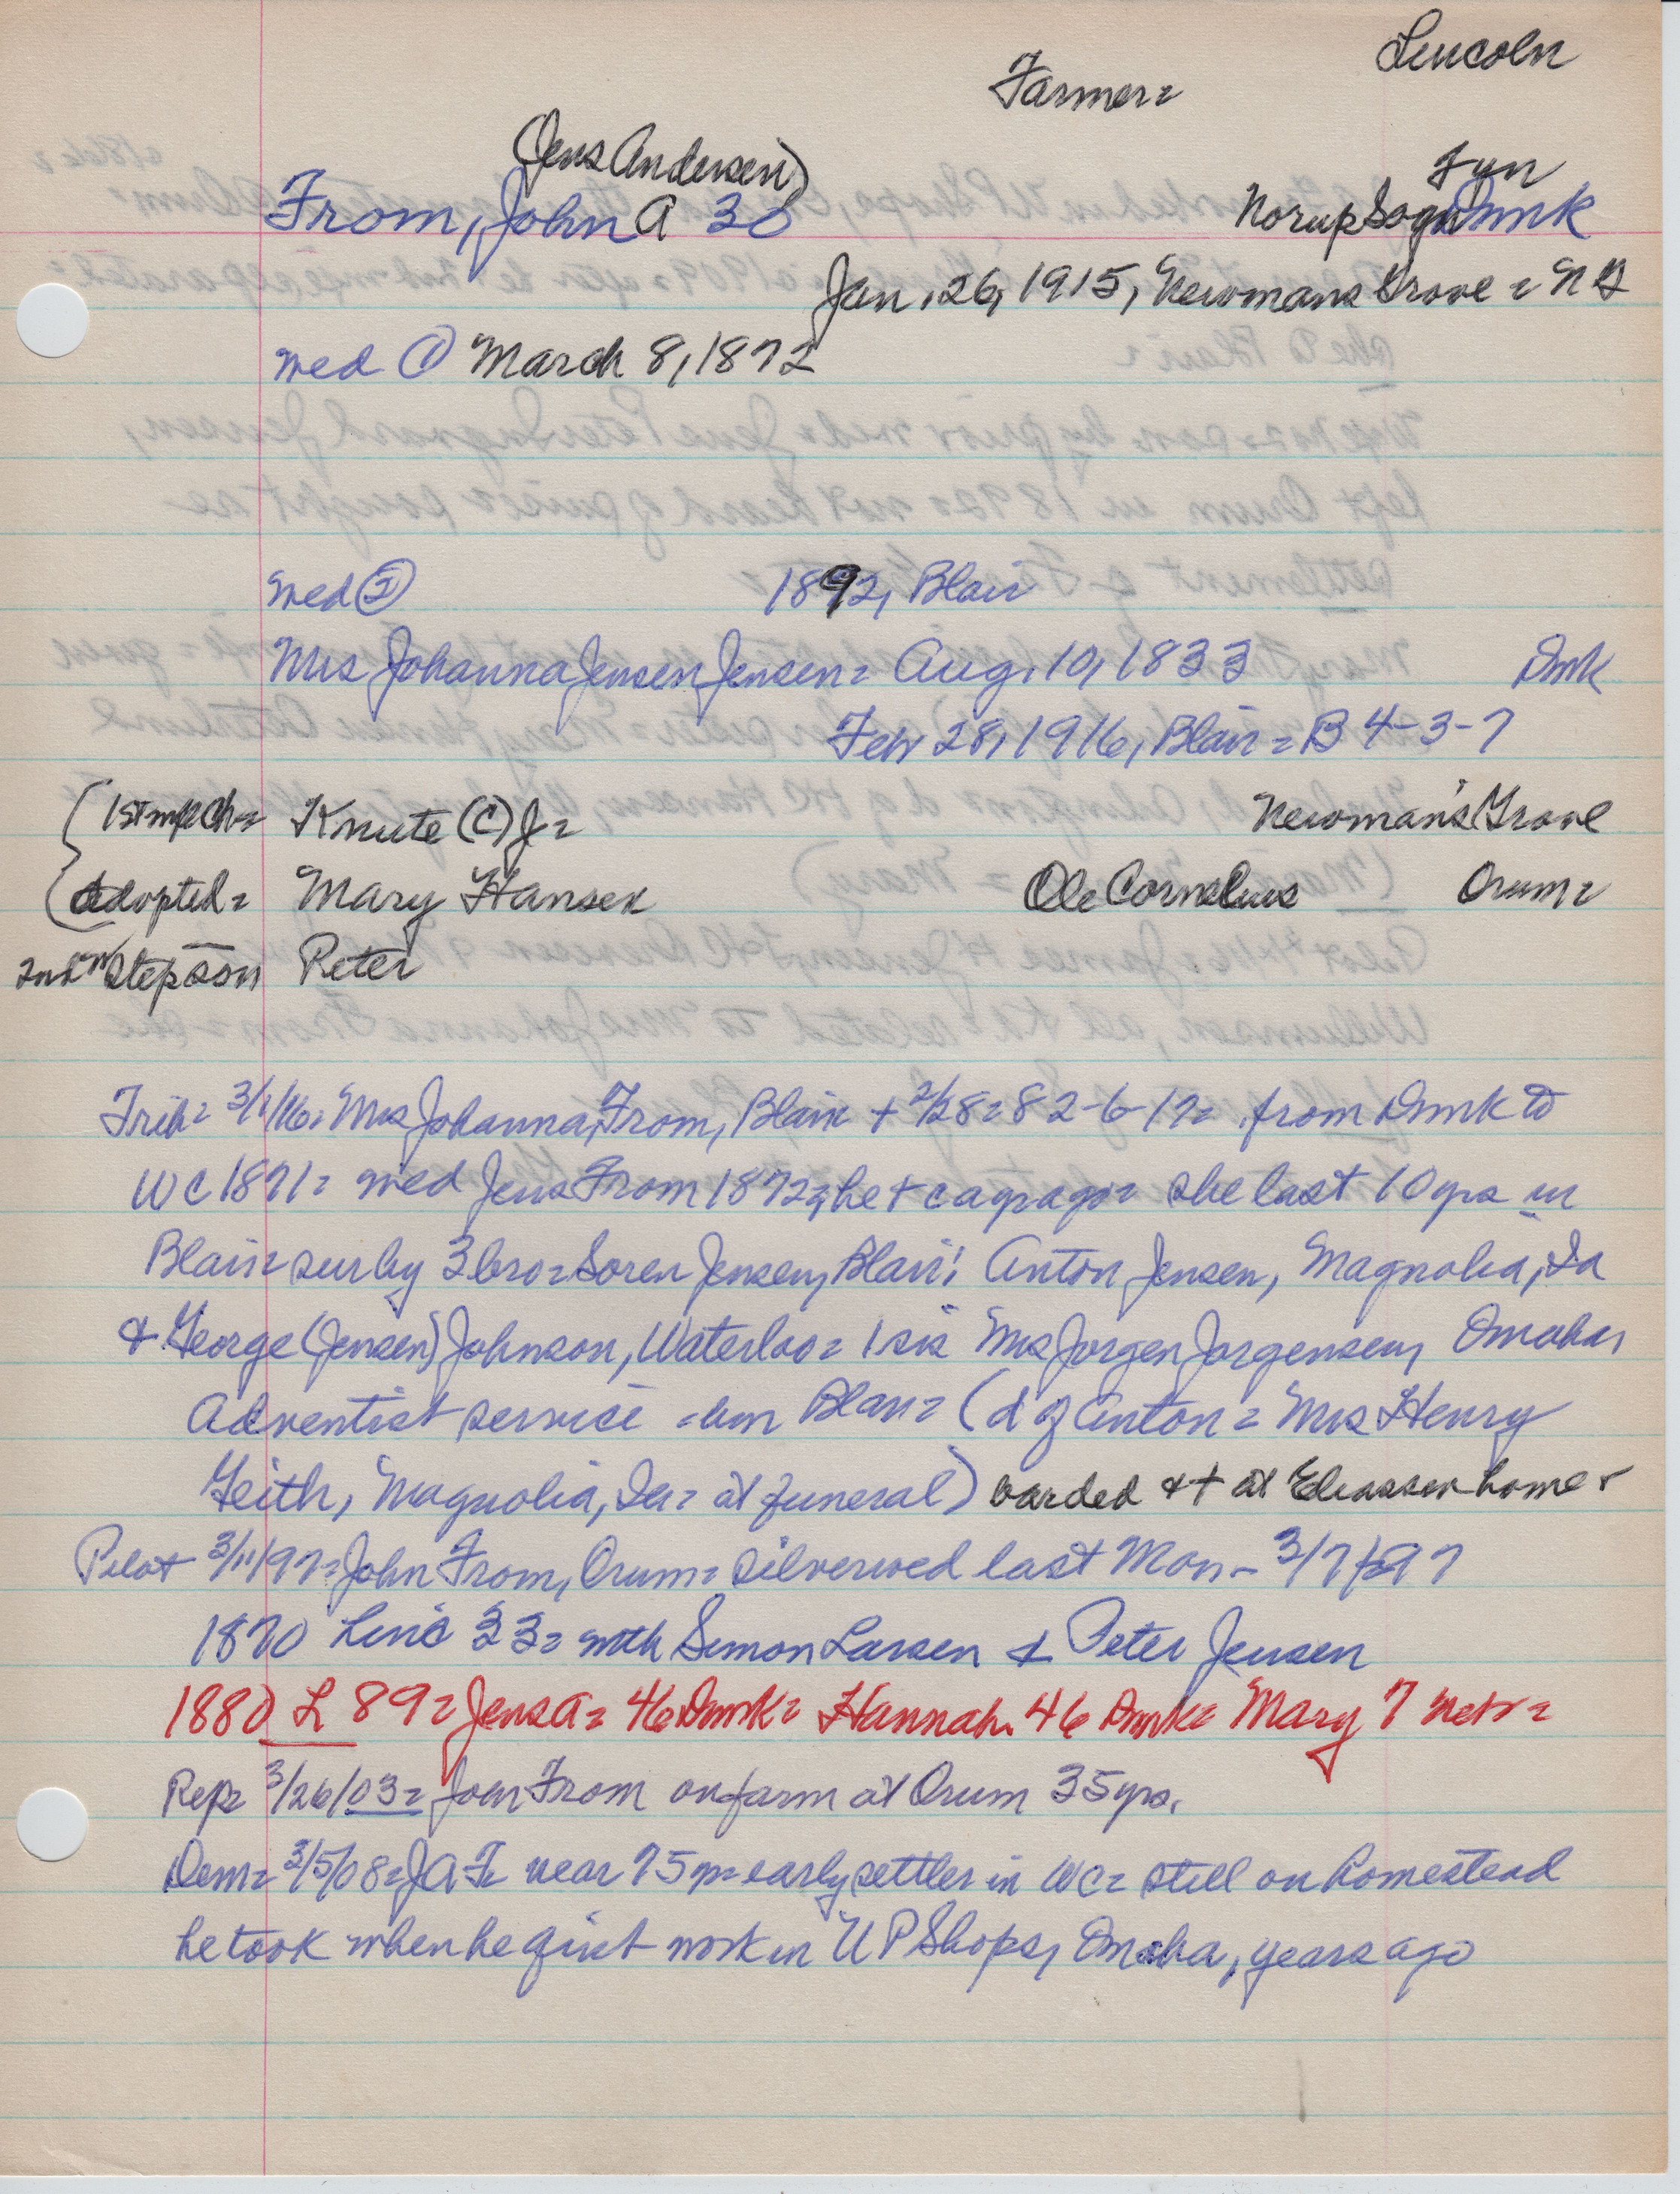 Lincoln
Farmer=
(Jens Andersen) Fyn
From, John A 38 Norup Sogn Dmk
Jan. 26, 1915, Newmans Grove = N G
wed ① March 8, 1872
wed ② 1892, Blair
Mrs Johanna Jensen Jensen= Aug. 10, 1833 Dmk
Feb 28, 1916, Blair = B 4-3-7
1st mge Ch= Knute (C) J= Newman's Grove
adopted= Mary Hansen Ole Cornelius Orum=
2nd m stepson Peter
Trib= 3/1/16= Mrs Johanna From, Blair + 2/28= 82-6-17= from Dmk to
WC 1871= wed Jens From 1872= he + ca yr ago= she last 10 yrs in
Blair= sur by 3 bro= Soren Jensen, Blair; Anton Jensen, Magnolia, Ia
& George (Jensen) Johnson, Waterloo= 1 sis Mrs Jorgen Jorgensen, Omaha,
Adventist service = bur Blair= (d of Anton = Mrs Henry
Geith, Magnolia, Ia= at funeral) boarded & + at Eliasson home
Pilot 3/11/97= John From, Orum= silver wed last Mon - 3/7/97
1870 Linc 33= with Simon Larsen & Peter Jensen
1880 L 89= Jens A= 46 Dmk= Hannah 46 Dmk= Mary 7 Nebr=
Rep= 3/26/03= John From on farm at Orum 35 yrs.
Dem= 3/5/08= J A F= near 75 yr= early settler in WC= still on homestead
he took when he quit work in U P Shops, Omaha, years ago